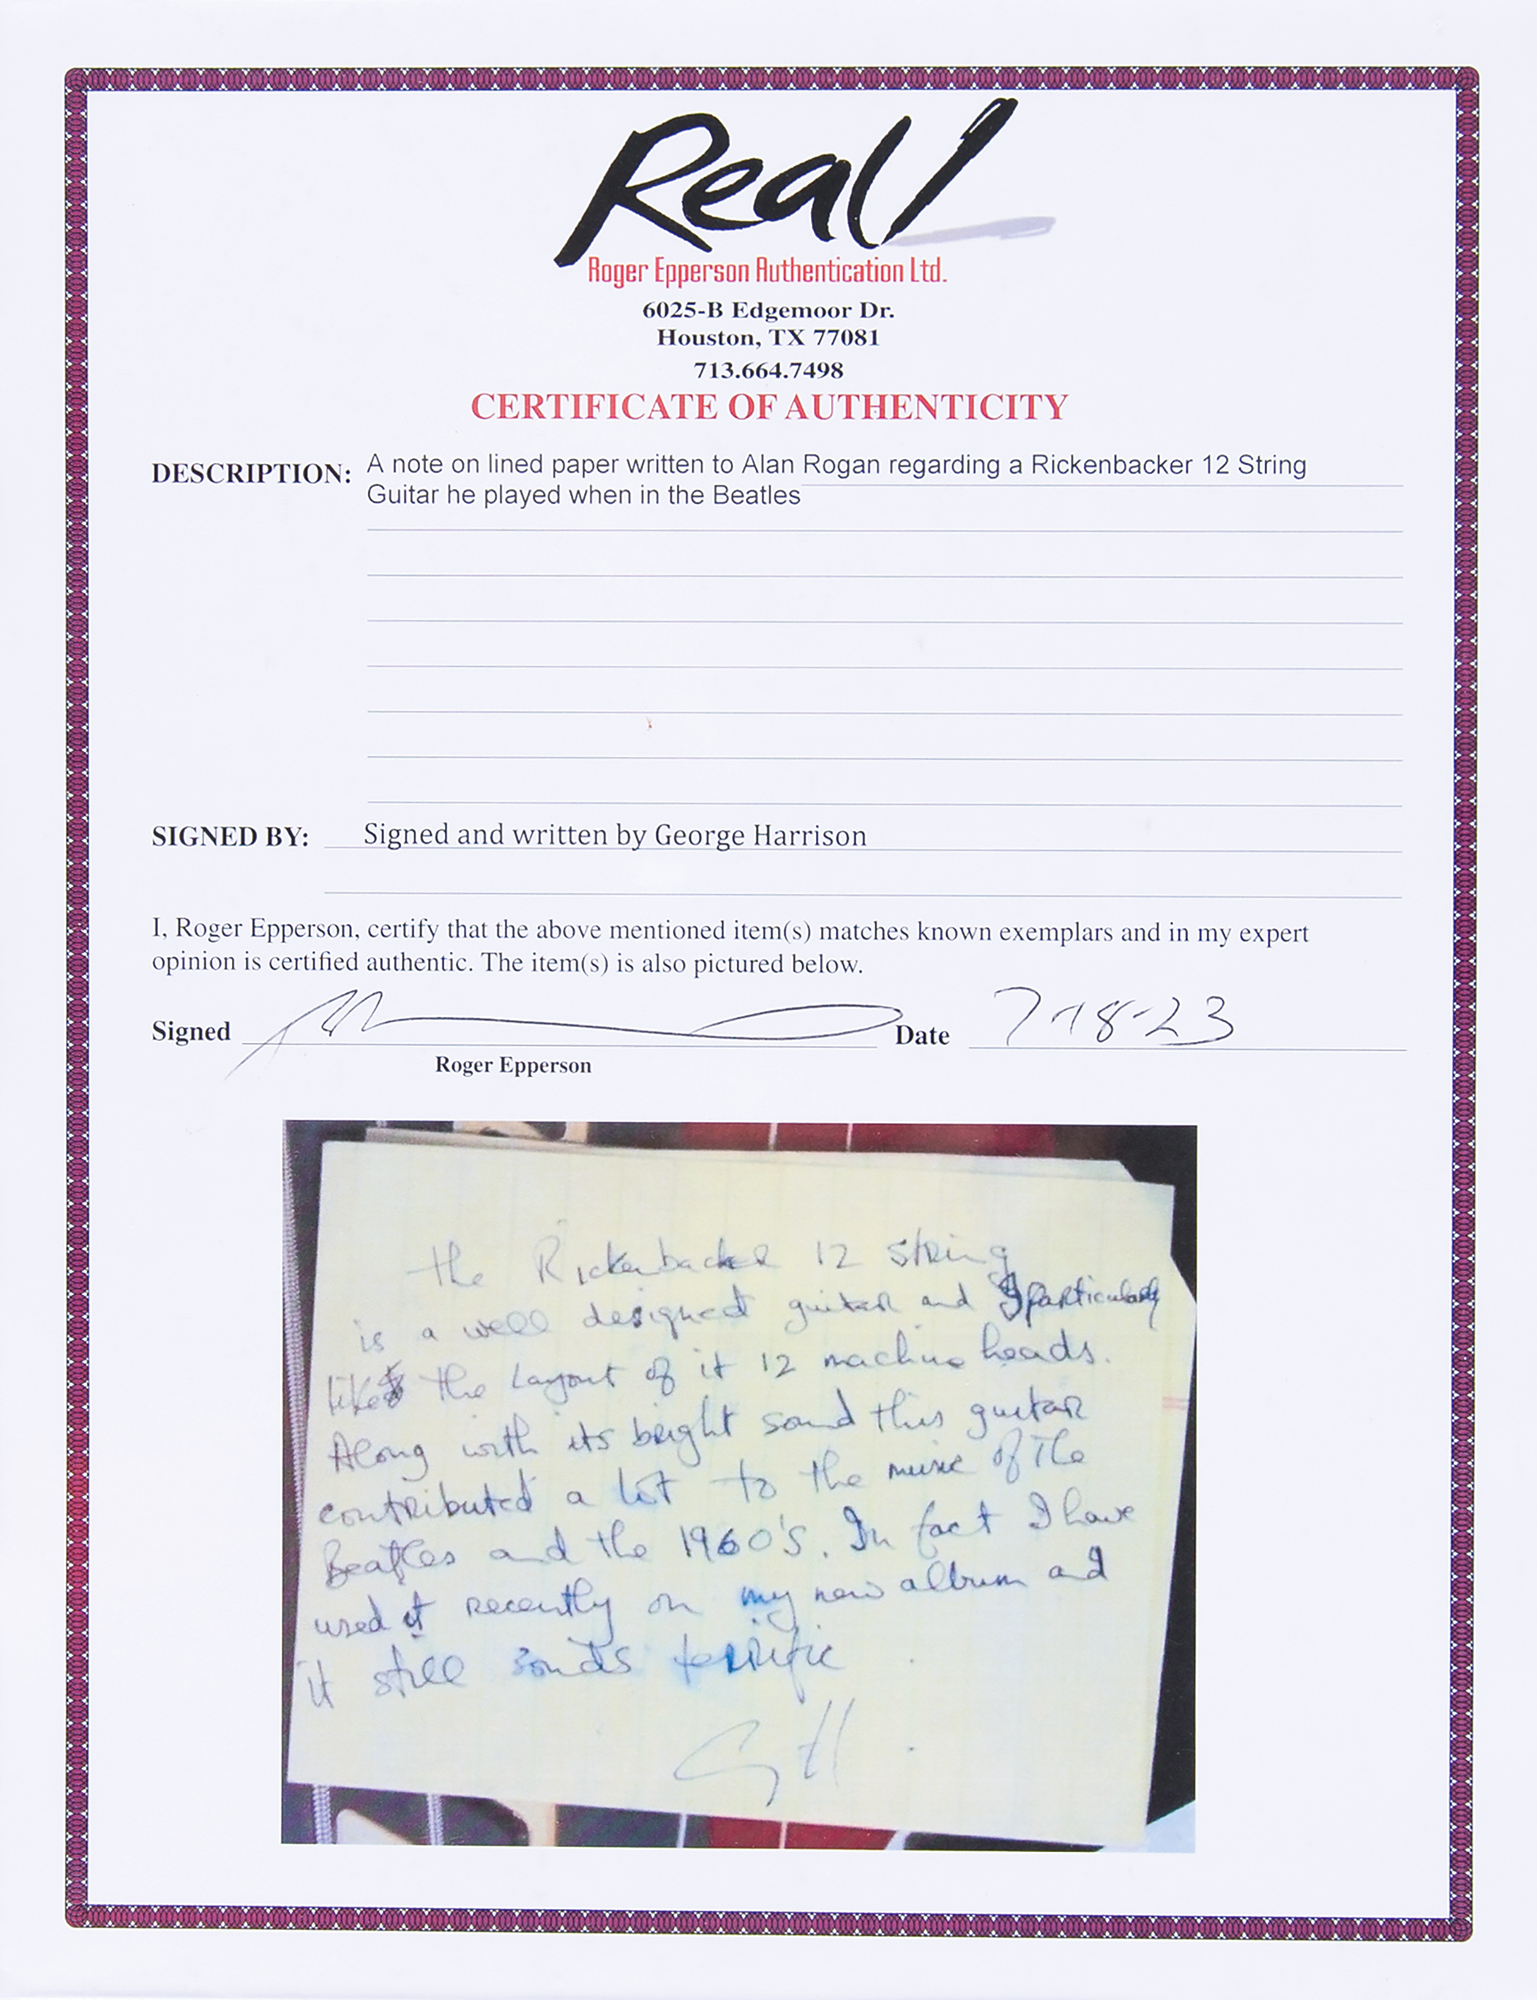 Real
Roger Epperson Authentication Ltd.
6025-B Edgemoor Dr.
Houston, TX 77081
713.664.7498
CERTIFICATE OF AUTHENTICITY
DESCRIPTION: A note on lined paper written to Alan Rogan regarding a Rickenbacker 12 String
Guitar he played when in the Beatles
SIGNED BY: Signed and written by George Harrison
I, Roger Epperson, certify that the above mentioned item(s) matches known exemplars and in my expert
opinion is certified authentic. The item(s) is also pictured below.
Signed Date 7-18-23
Roger Epperson
the Rickenbacker 12 string
is a well designed guitar and I particularly
like the layout of it 12 machine heads.
Along with its bright sound this guitar
contributed a lot to the music of The
Beatles and the 1960's. In fact I have
used it recently on my new album and
it still sounds terrific